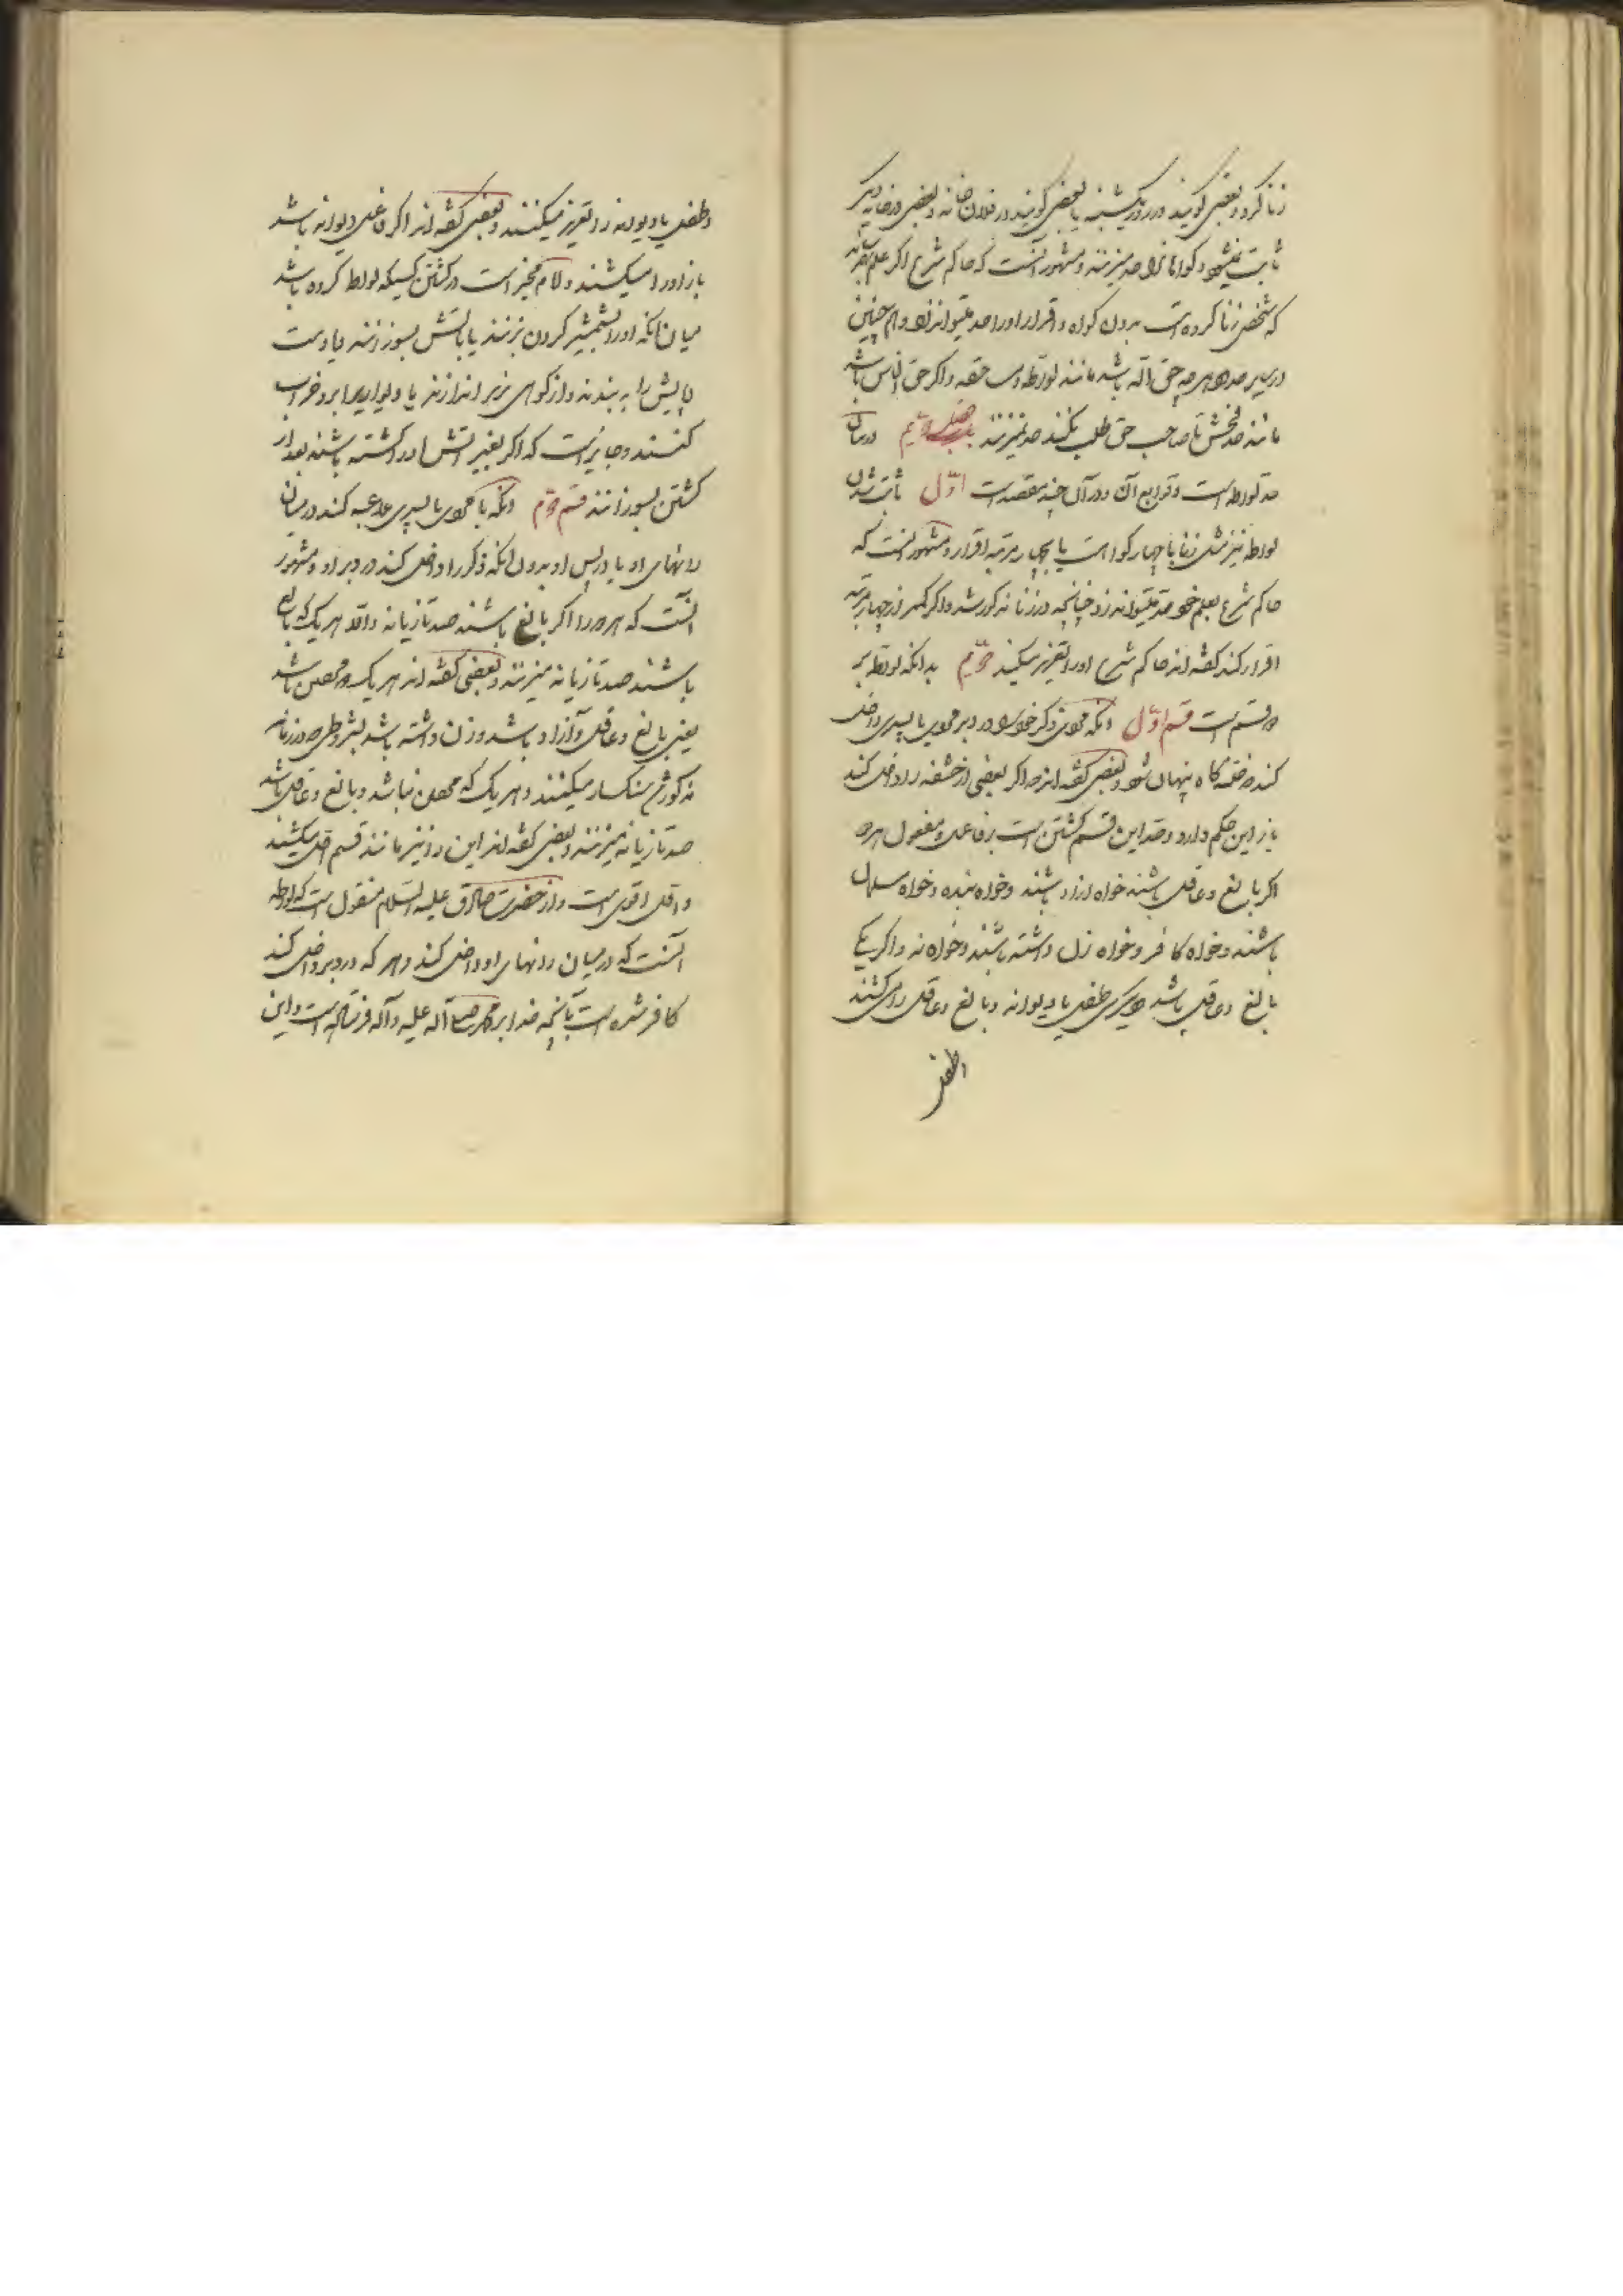 زنا کرد و بعضی گویند در روز یکشنبه یا بعضی گویند در فلان خانه و بعضی در خانه دیگر
ثابت نمیشود و گواهانرا حد میزنند و مشهور آنست که حاکم شرع اگر علم بهم رساند
که شخصی زنا کرده است بدون گواه و اقرار او را حد میتواند زد و هم چنین
در سایر حدود هر چه حق الله باشد مانند لواطه و مساحقه و اگر حق الناس باشد
مانند حد فحش تا صاحب حق طلب نکند حد نمیزنند فصل دویم در بیان
حد لواطه است و توابع آن و در آن چند مقصد است اوّل ثابت شدن
لواطه نیز مثل زنا یا بچهار گواه است یا بچهار مرتبه اقرار و مشهور آنست که
حاکم شرع بعلم خود حد میتواند زد چنانچه در زنا مذکور شد و اگر کمتر از چهار مرتبه
اقرار کند گفته اند حاکم شرع او را تعزیر میکند دویّم بدانکه لواطه بر
دو قسم است قسم اوّل آنکه مردی ذکر خود را در دبر مردی یا پسری داخل
کند که ختنه گاه پنهان شود و بعضی گفته اند که اگر بعضی از حشفه را داخل کند
باز این حکم دارد و حد این قسم کشتن است بر فاعل و مفعول هر دو
اگر بالغ و عاقل باشند خواه آزاد باشند و خواه بنده و خواه مسلمان
باشند و خواه کافر و خواه زن داشته باشند و خواه نه و اگر یکی
بالغ و عاقل باشد و دیگری طفل یا دیوانه و بالغ و عاقل را می کشند
و طفل
و طفل یا دیوانه را تعزیر میکنند و بعضی گفته اند اگر فاعل دیوانه باشد
باز او را میکشند و امام مخیر است در کشتن کسیکه لواط کرده باشد
میان آنکه او را بشمشیر گردن بزنند یا بآتش بسوزانند یا دست
و پایش را به بندند و از کوهی بزیر اندازند یا دیواریرا بر او خراب
کنند و جایز است که اگر بغیر آتش او را کشته باشند بعد از
کشتن بسوزانند قسم دویّم آنکه با مردی یا پسری ملاعبه کند در میان
رانهای او یا در پس او بدون آنکه ذکر را داخل کند در دبر او و مشهور
آنست که هر دو را اگر بالغ باشند صد تازیانه و الا هر یک که بالغ
باشند صد تازیانه میزنند و بعضی گفته اند هر یک که محصن باشد
یعنی بالغ و عاقل و آزاد باشد و زن داشته باشد بشروطی که در زنا
مذکور شد سنکسار میکنند و هر یک که محصن نباشد و بالغ و عاقل باشد
صد تازیانه میزنند و بعضی گفته اند این را نیز مانند قسم اول میکشند
و اول اقوی است و از حضرت صادق علیه السلام منقول است که لواطه
آنست که در میان رانهای او داخل کند و هر که در دبر داخل کند
کافر شده است بآنچه خدا بر محمد صلی الله علیه و آله فرستاده است و این